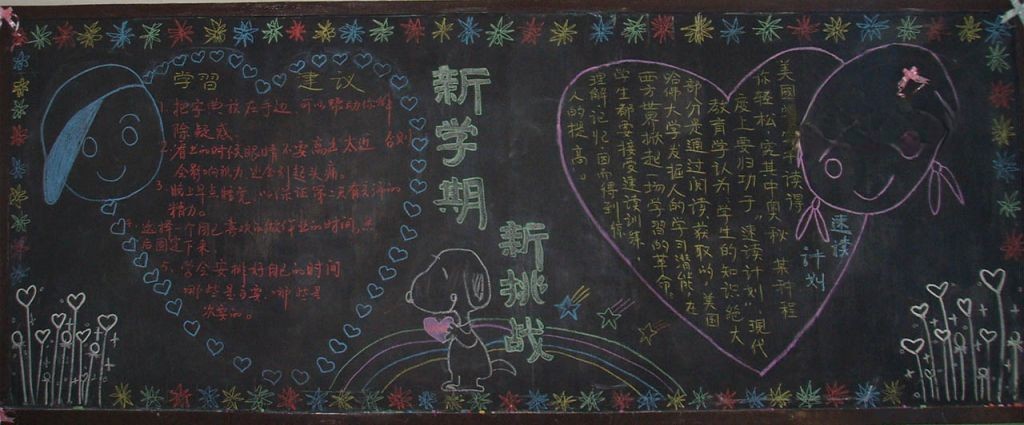 学習 建议
1. 把字典放在手边,可以帮助你解
除疑惑。
2. 看书的时候眼睛不要离书太近 否则
会影响视力 还会引起头痛。
3. 晚上早点睡觉,以保证第二天有充沛的
精力。
4. 选择一个自己喜欢的做作业的时间,然
后固定下来。
5. 学会安排好自己的时间
哪些是主要,哪些是
次要的。
新学期
新挑战
速读
计划
美国 读
你轻松
度上要归功于“速读计划”,现代
教育学认为,学生的知识绝大
部分是通过阅读获取的,美国
哈佛大学发掘人的学习潜能,在
西方世界掀起一场学习的革命。
学生都要接受速读训练,
理解记忆因而得到
人的提高。